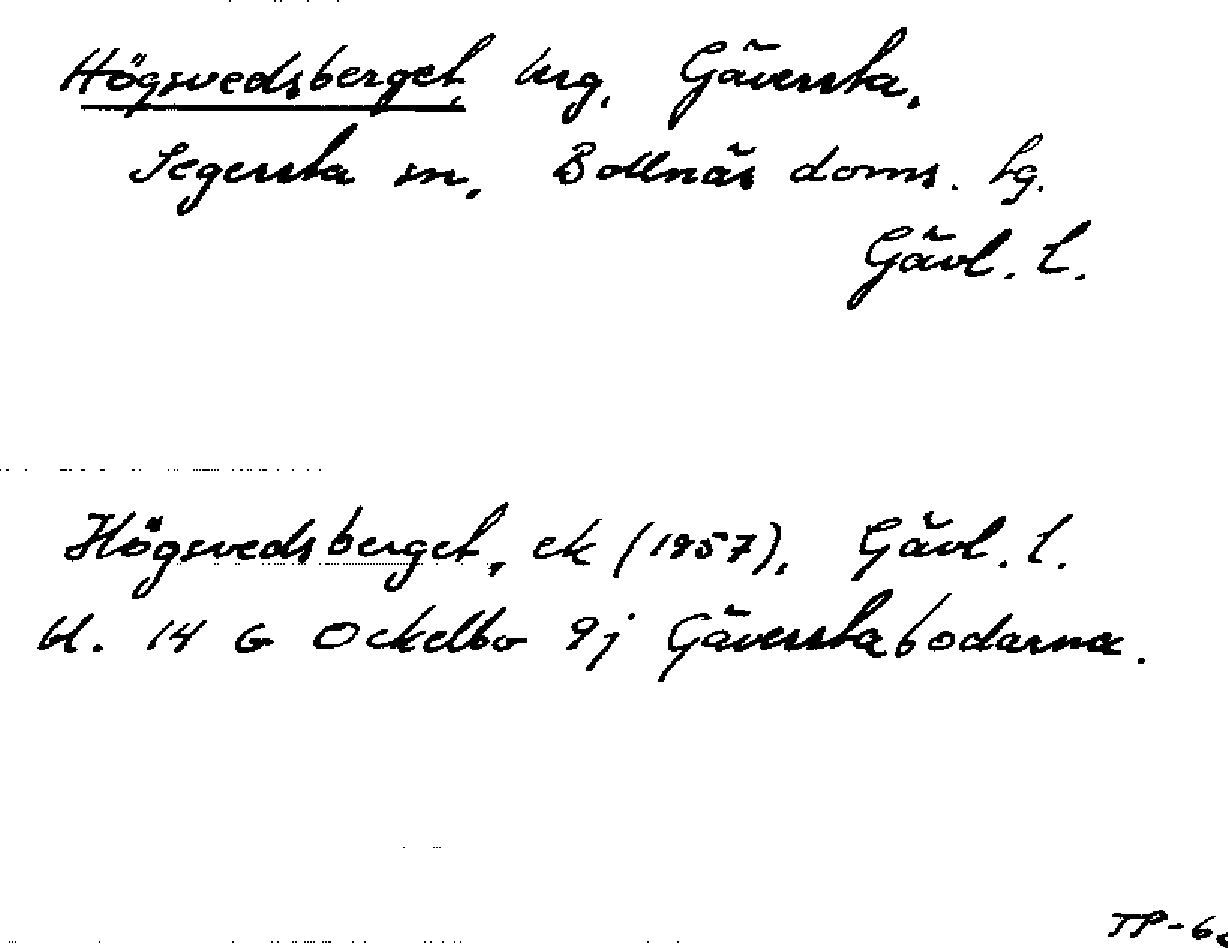 Högsvedsberget, brg, Gäversta,
Segersta sn, Bollnäs doms. lg.
Gävl. l.
Högsvedsberget, ek (1957), Gävl. l.
bl. 14 G Ockelbo 9j Gäverstabodarna.